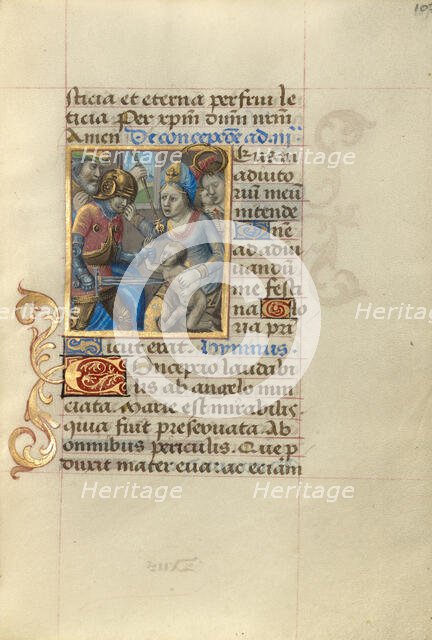 107
sticia et eterna perfrui le
ticia Per xpm dum nrm
Amen De concepcõe ad.iii.
adiuto
rium meum
intende
ne
ad adiu
uandu
me fes
ina Glo
ria pri
Sicut erat. Hymnus.
Concepcio laudabi
lis ab angelo nun
ciata. Marie est mirabilis
quia fuit preseruata. Ab
omnibus periculis. Que p
duxit mater eua: ac eciam
Heritage
Heritage
Heritage
Heritage
Heritage